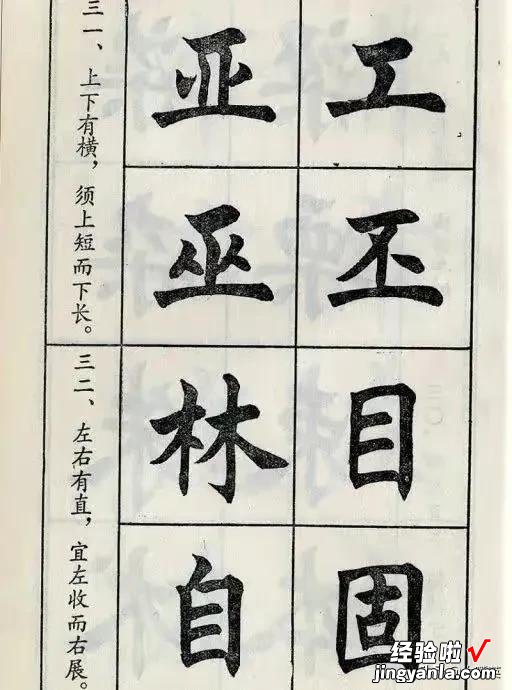 三一、上下有横，须上短而下长。
工
亚
丕
巫
三二、左右有直，宜左收而右展。
目
林
固
自
经验啦√
jingyanla.com